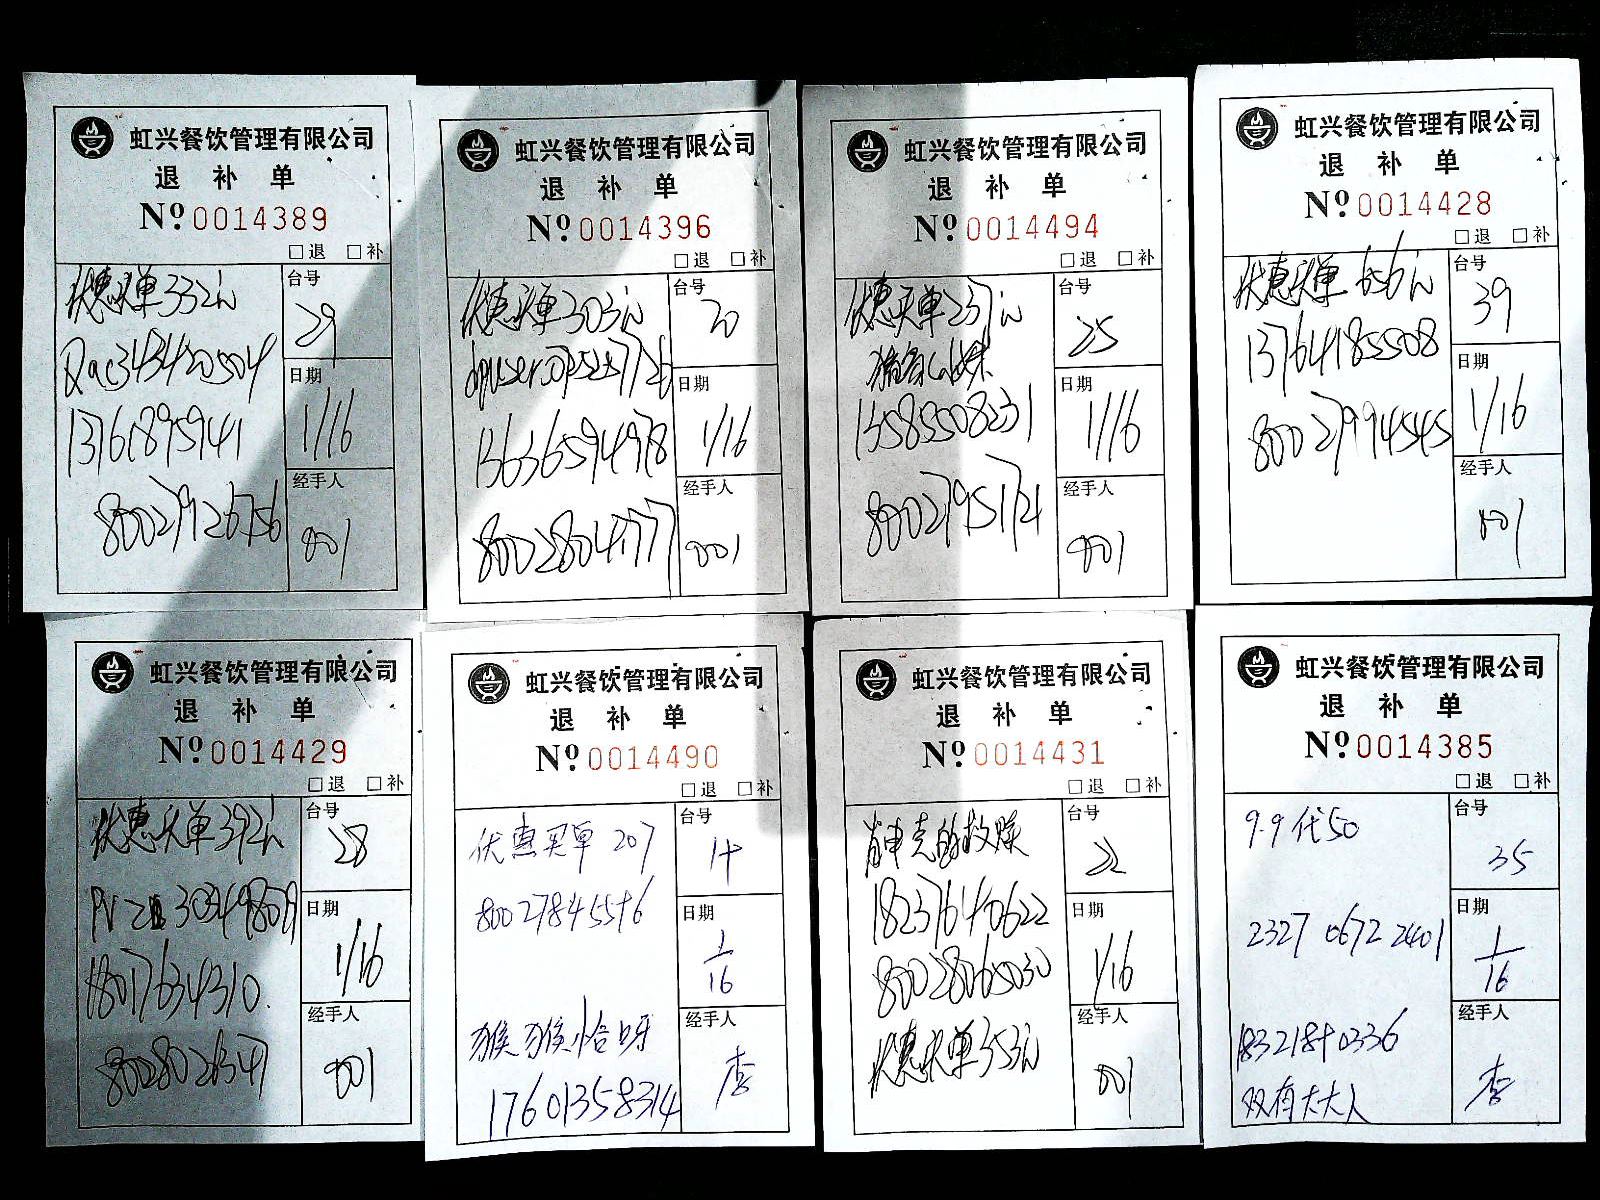 虹兴餐饮管理有限公司
退 补 单
Nº 0014389
□退 □补
优惠买单332元
13761895941
800279126756
台号
29
日期
1/16
经手人
001
虹兴餐饮管理有限公司
退 补 单
Nº 0014396
□退 □补
优惠买单303元
13636594978
台号
20
日期
1/16
经手人
001
虹兴餐饮管理有限公司
退 补 单
Nº 0014494
□退 □补
优惠买单237元
13585508231
台号
25
日期
1/16
经手人
001
虹兴餐饮管理有限公司
退 补 单
Nº 0014428
□退 □补
优惠买单 656元
13764185508
800279994545
台号
39
日期
1/16
经手人
001
虹兴餐饮管理有限公司
退 补 单
Nº 0014429
□退 □补
优惠买单392元
18017634310
台号
28
日期
1/16
经手人
001
虹兴餐饮管理有限公司
退 补 单
Nº 0014490
□退 □补
优惠买单 207
猴猴恰呀
17601358314
台号
14
日期
1/16
经手人
李
虹兴餐饮管理有限公司
退 补 单
Nº 0014431
□退 □补
肖申克的救赎
18237640622
80028065030
优惠买单353元
台号
22
日期
1/16
经手人
001
虹兴餐饮管理有限公司
退 补 单
Nº 0014385
□退 □补
9.9代50
2327 0672 2401
18321840336
双有大大人
台号
35
日期
1/16
经手人
李